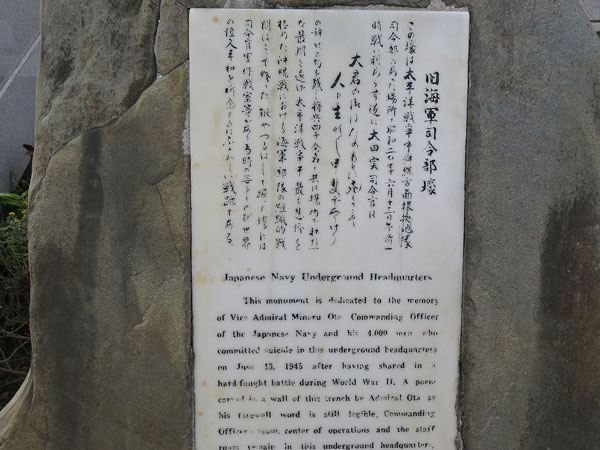 旧海軍司令部壕
この壕は太平洋戦争中沖縄方面根拠地隊
司令部のあった場所で昭和二十年六月十三日午前一
時戦い利あらず遂に大田実司令官は
大君の御はたのもとに死してこそ
人と生れし甲斐ぞありけり
の辞世の句を残し将兵四千余名と共に壕内で壮烈
な最期を遂げ太平洋戦争中最も悲惨を
極めた沖縄戦における海軍部隊の組織的戦
闘はこゝで終った 鍬やつるはしで掘った壕には
司令官室作戦室等があり当時の姿をしのび世界
の恒久平和を祈念するにふさわしい戦跡である。
Japanese Navy Underground Headquarters
This monument is dedicated to the memory
of Vice Admiral Minoru Ota Commanding Officer
of the Japanese Navy and his 4,000 men who
committed suicide in this underground headquarters
on June 13, 1945 after having shared in a
hard-fought battle during World War II. A poem
carved in a wall of this trench by Admiral Ota as
his farewell word is still legible, Commanding
Officer's room, center of operations and the staff
room remain in this underground headquarters.